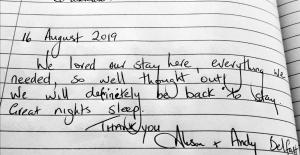 16 August 2019
We loved our stay here, everything we
needed, so well thought out!
We will definetely be back to stay.
Great nights sleep.
Thank you
Alison + Andy Belfast